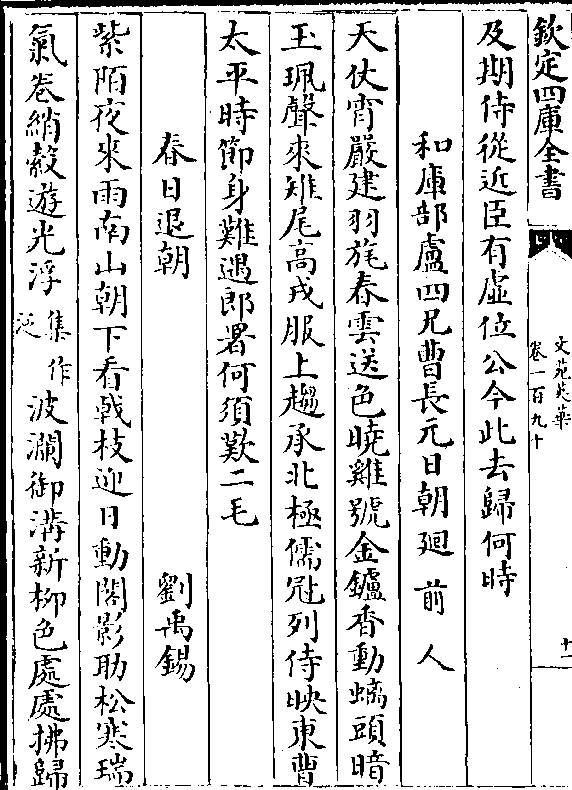 欽定四庫全書
文苑英華
卷一百九十
十一
及期侍從近臣有虛位公今此去歸何時
和庫部盧四兄曹長元日朝廻 前人
天仗宵嚴建羽旄春雲送色曉雞號金鑪香動螭頭暗
玉珮聲來雉尾高戎服上趨承北極儒冠列侍映東曹
太平時節身難遇郎署何須歎二毛
春日退朝 劉禹錫
紫陌夜來雨南山朝下看戟枝迎日動閣影助松寒瑞
氣卷綃縠遊光浮集作泛波瀾御溝新柳色處處拂歸